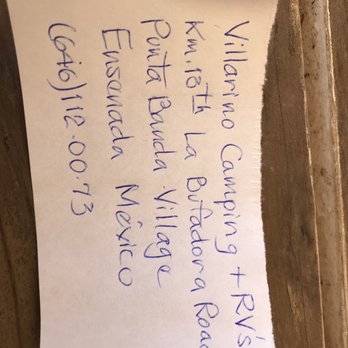 Villarino Camping + RV's
Km. 13th La Bufadora Road
Punta Banda Village
Ensenada México
(646) 112.00.73